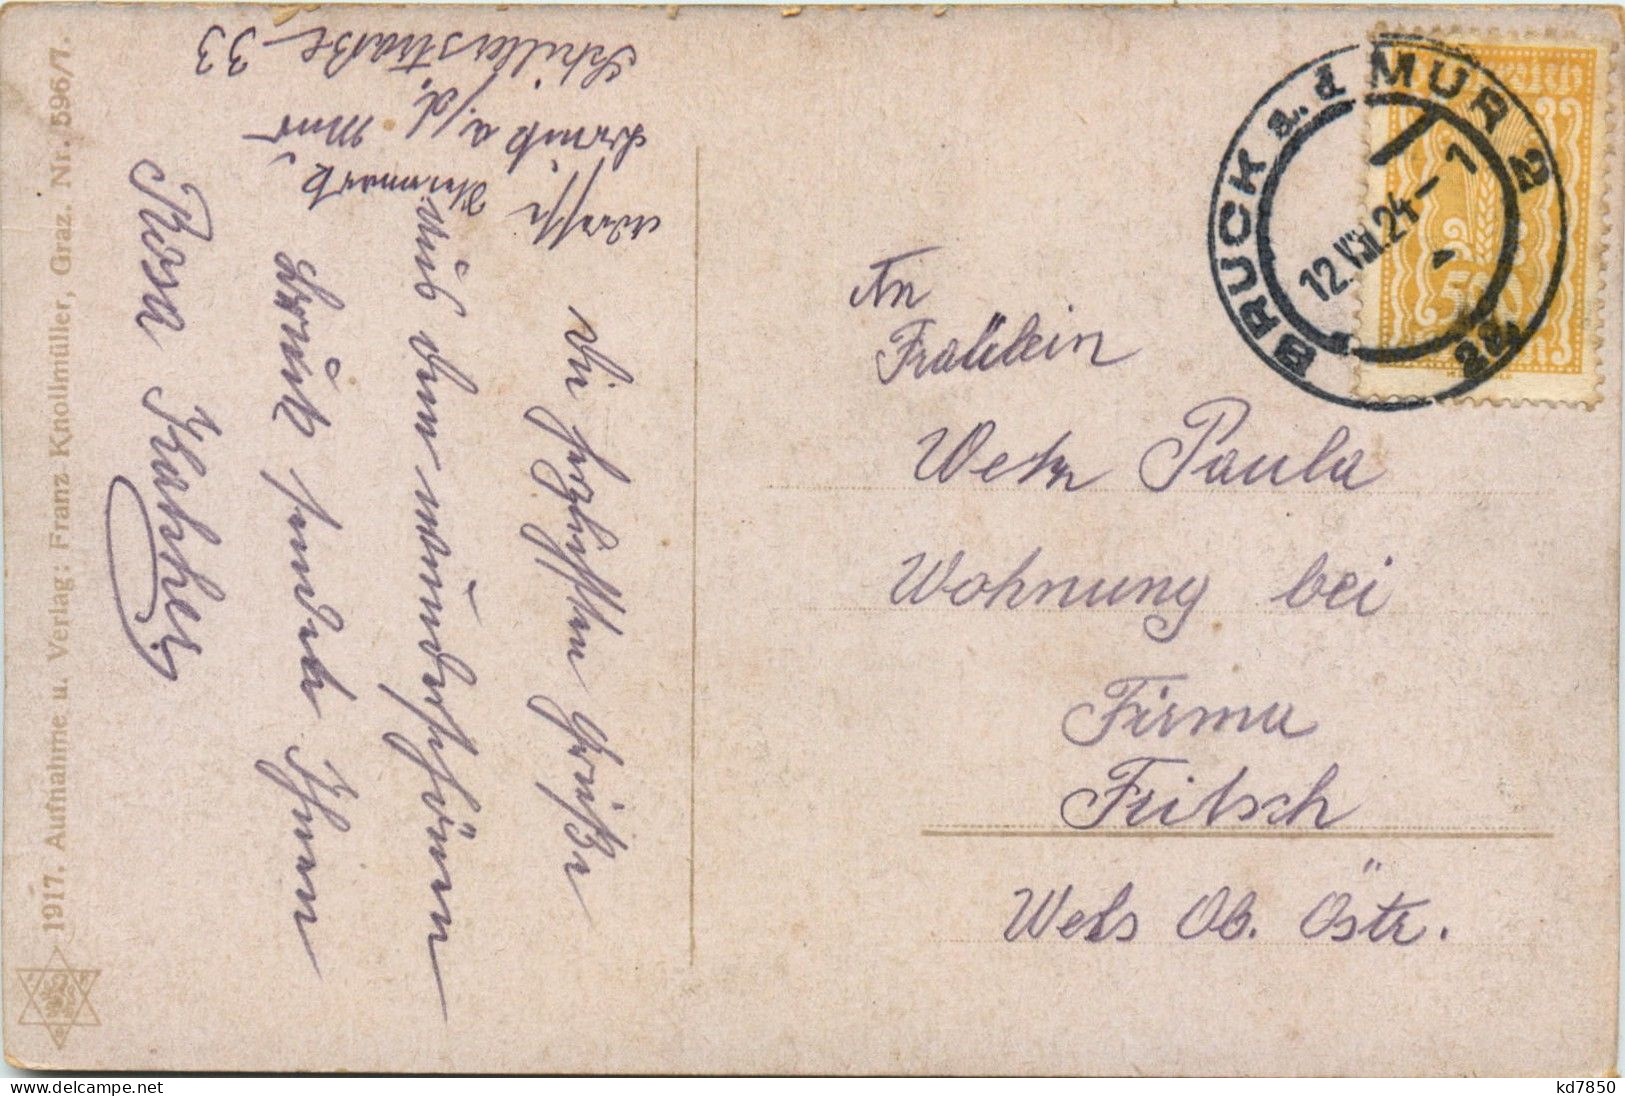 1917. Aufnahme u. Verlag: Franz Knollmüller, Graz. Nr. 596/7.
Die herzlichsten Grüße
aus dem wunderschönen
Bruck sendet Ihnen
Rosa
Adresse
Bruck a/d. Mur
Steiermark,
Schillerstraße 33
BRUCK a. d. MUR 2
12.VIII.24 - 1
An
Fraülein
Paula
Wohnung bei
Firma
Fritsch
Wels Ob. Östr.
kd7850